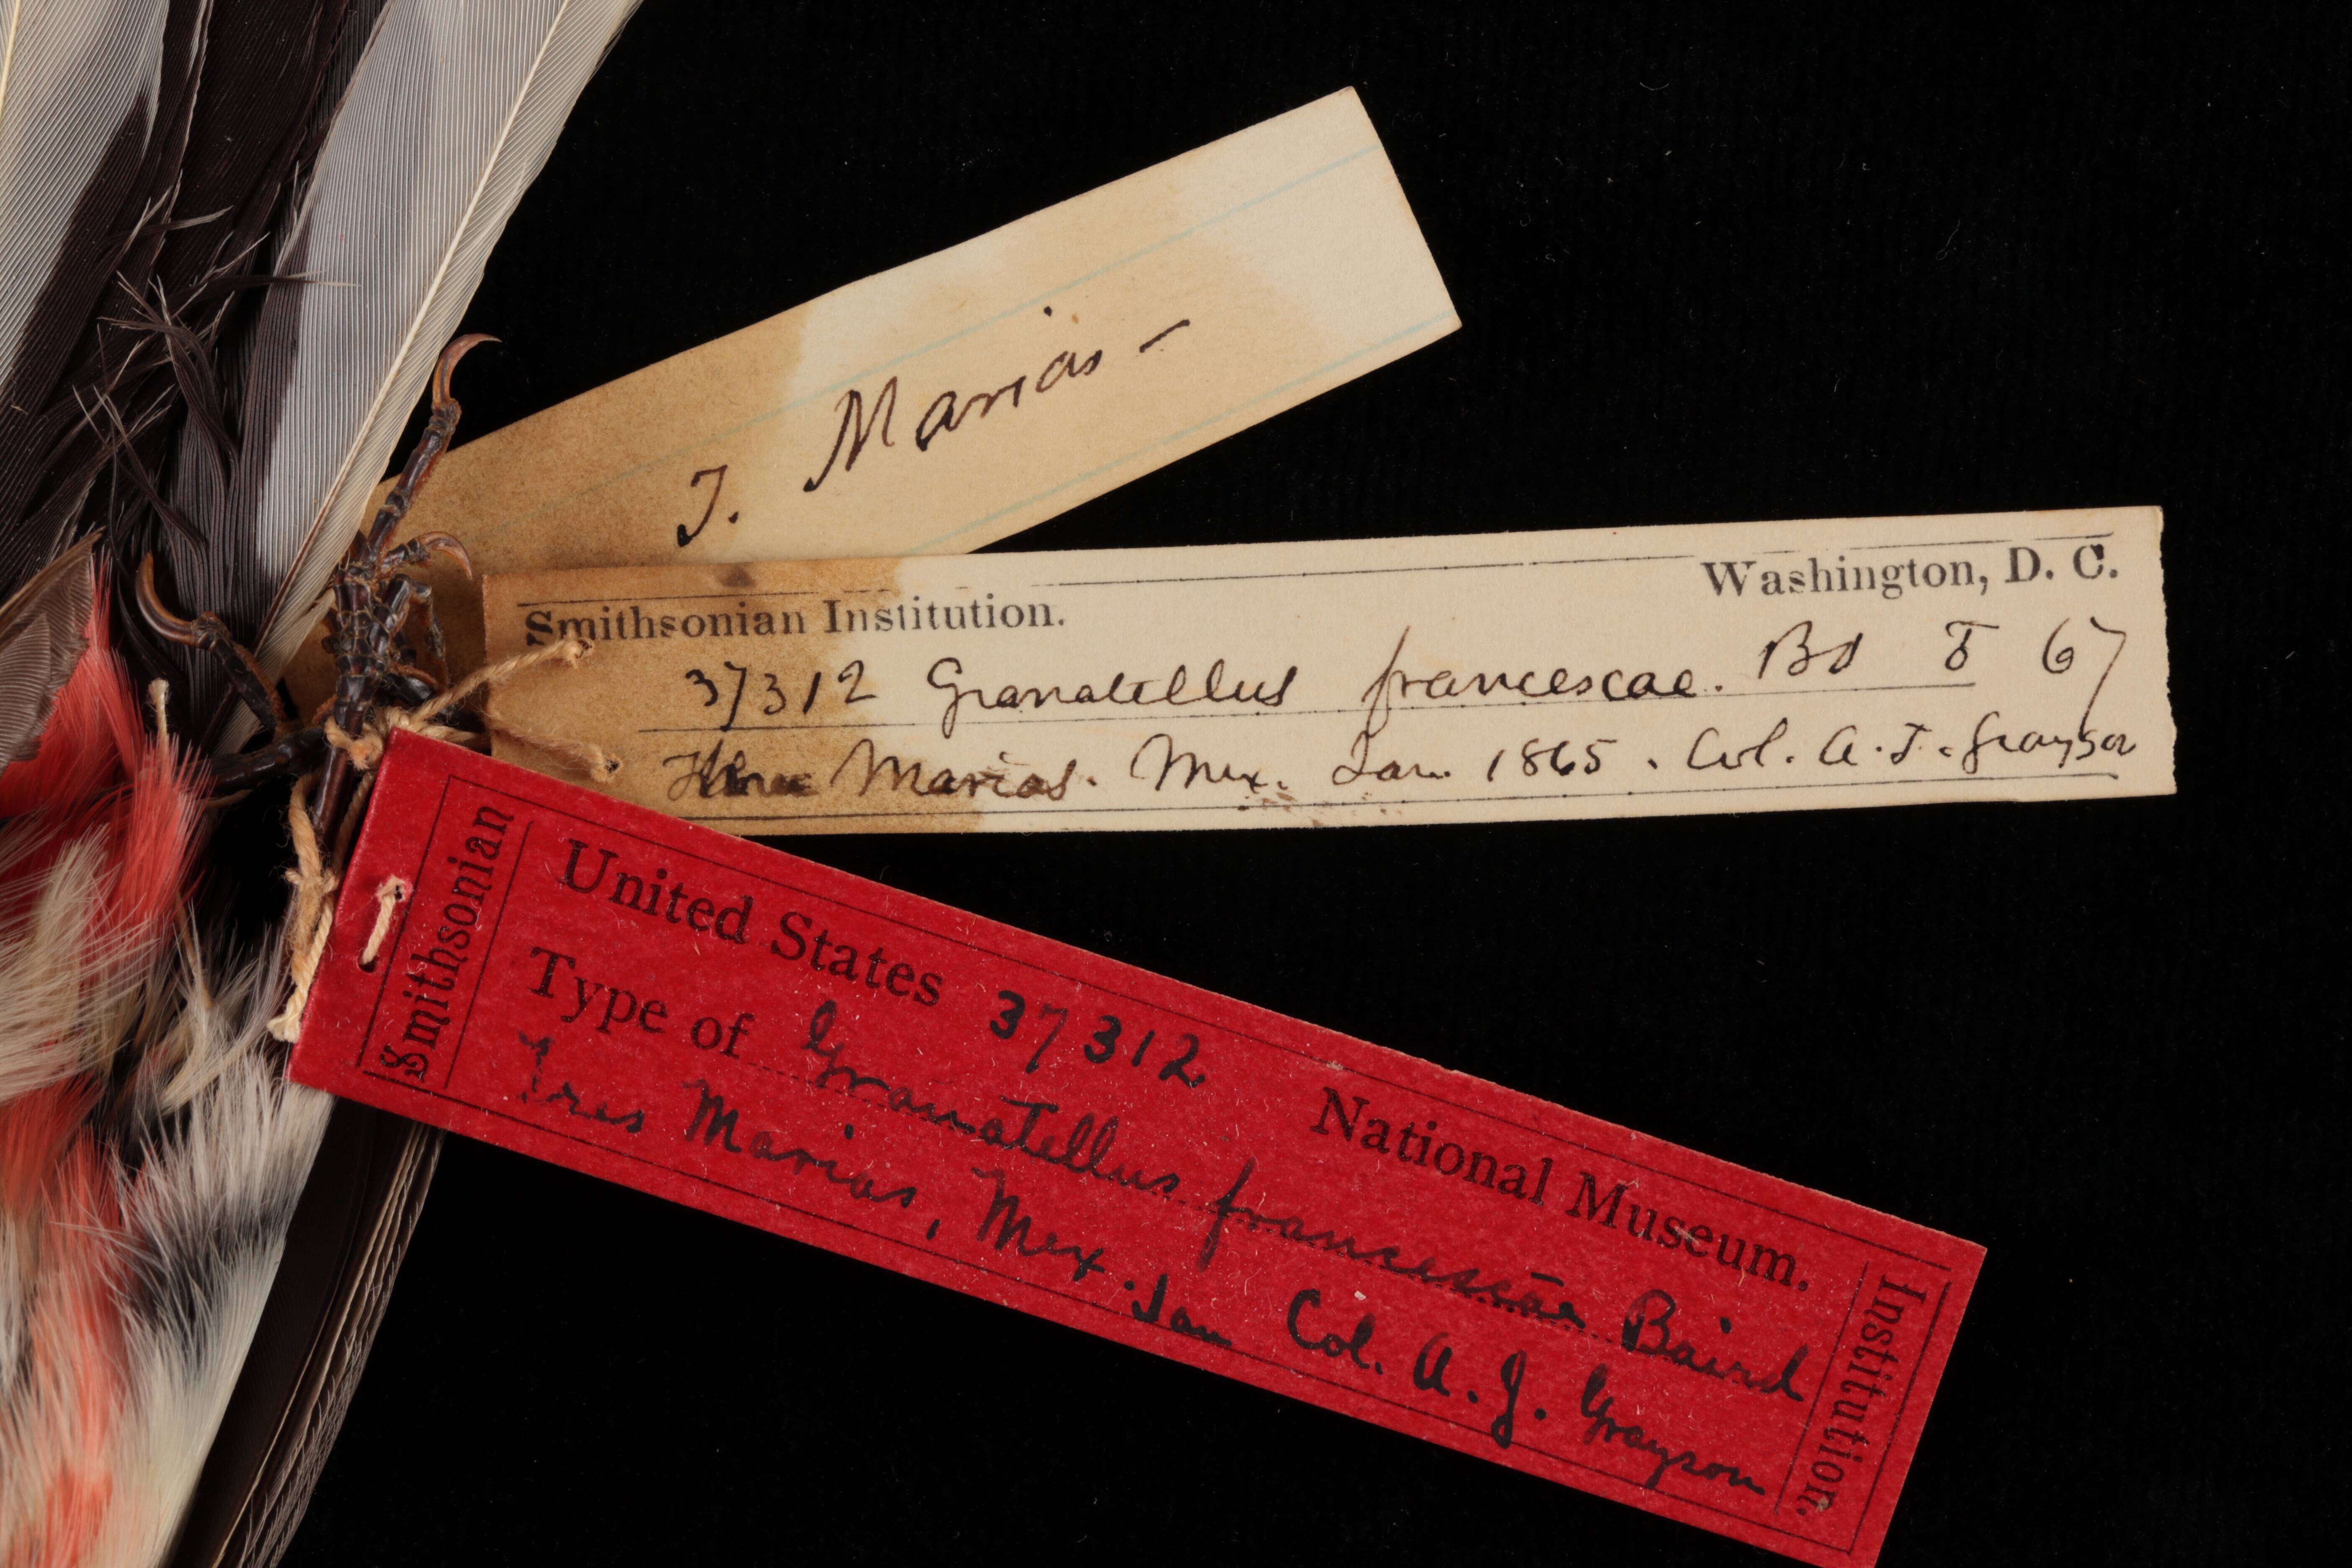 T. Marias -
Smithsonian Institution. Washington, D. C.
37312 Granatellus francescae. Bd 67
Three Marias. Mex. Jan. 1865. Col. A. J. Grayson
Smithsonian
United States 37312 National Museum.
Type of Granatellus francescae Baird
Tres Marias, Mex. Jan Col. A. J. Grayson
Institution.